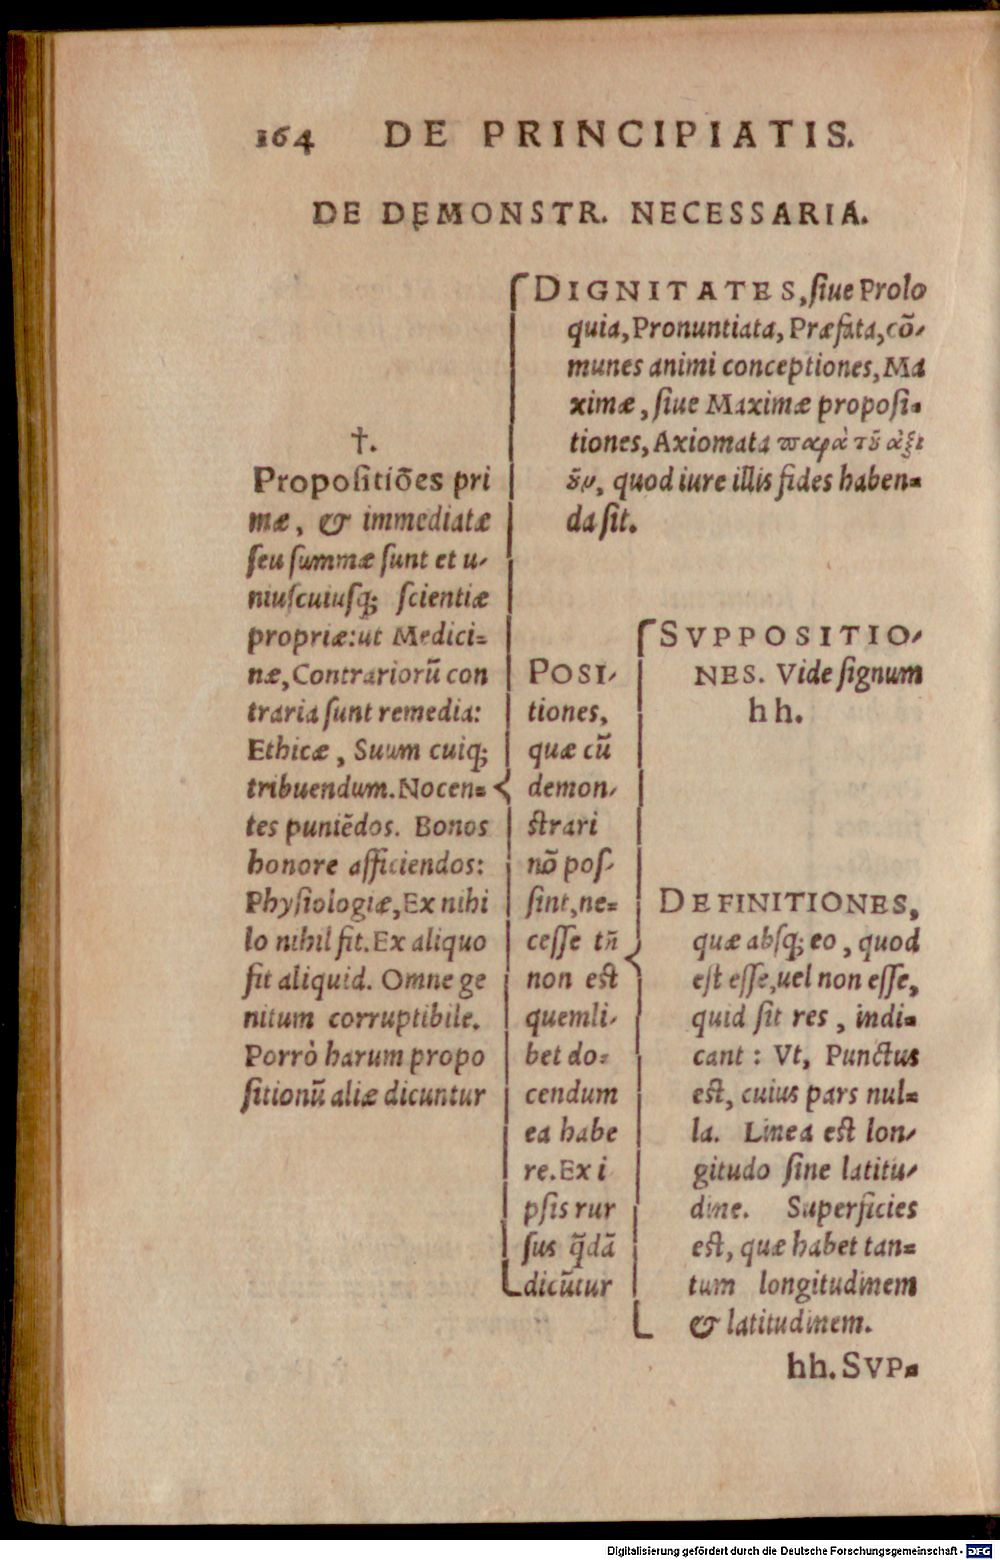 164 DE PRINCIPIATIS.
DE DEMONSTR. NECESSARIA.
†.
Propositiões pri
mæ, & immediatæ
ſeu ſummæ ſunt et u-
niuſcuiuſq; ſcientiæ
propriæ:ut Medici=
næ, Contrariorũ con
traria ſunt remedia:
Ethicæ, Suum cuiq;
tribuendum. Nocen=
tes puniẽdos. Bonos
honore afficiendos:
Phyſiologiæ, Ex nihi
lo nihil fit. Ex aliquo
fit aliquid. Omne ge
nitum corruptibile.
Porrò harum propo
ſitionũ aliæ dicuntur
DIGNITATES, ſiue Prolo
quia, Pronuntiata, Præfata, cõ-
munes animi conceptiones, Ma
ximæ, ſiue Maximæ propoſi=
tiones, Axiomata παρὰ τȣ͂ ἀξι
ȣ͂ν, quod iure illis fides haben=
da ſit.
POSI-
tiones,
quæ cũ
demon-
ſtrari
nõ poſ-
ſint, ne=
ceſſe tñ
non eſt
quemli-
bet do=
cendum
ea habe
re. Ex i
pſis rur
ſus q̃dã
dicũtur
SVPPOSITIO-
NES. Vide ſignum
hh.
DEFINITIONES,
quæ abſq; eo, quod
eſt eſſe, uel non eſſe,
quid ſit res, indi=
cant: Vt, Punctus
eſt, cuius pars nul=
la. Linea eſt lon-
gitudo ſine latitu-
dine. Superficies
eſt, quæ habet tan=
tum longitudinem
& latitudinem.
hh. SVP=
Digitalisierung gefördert durch die Deutsche Forschungsgemeinschaft - DFG